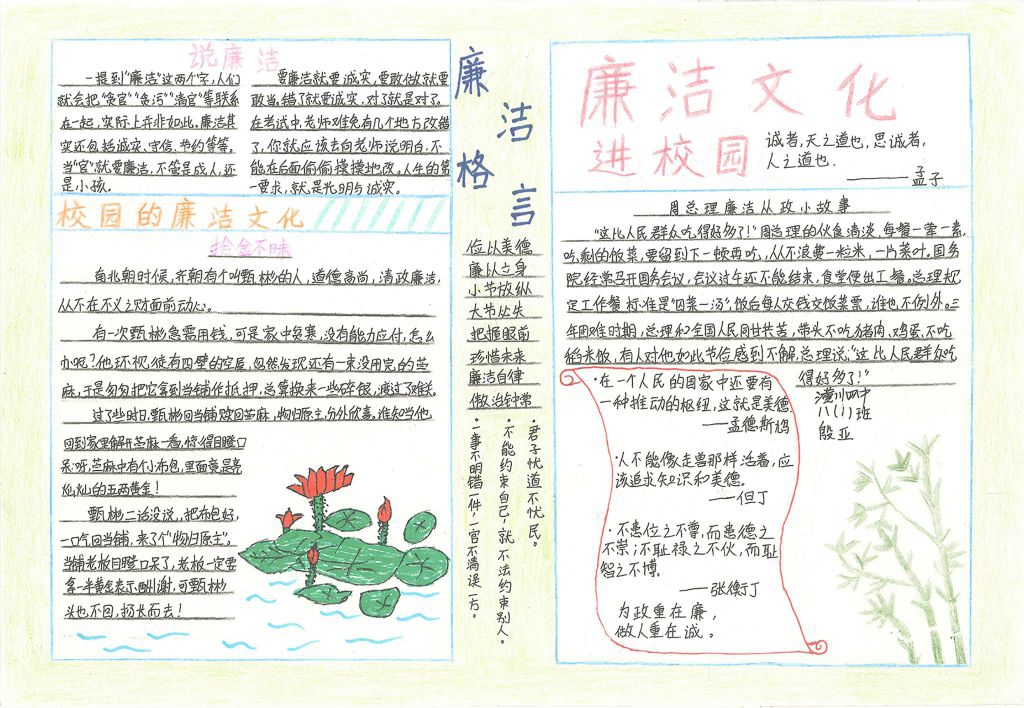 说廉洁
一提到“廉洁”这两个字，人们
就会把“贪官”“贪污”“清官”等联系
在一起，实际上并非如此。廉洁其
实还包括诚实、守信、节约等等。
当“官”就要廉洁，不管是成人，还
是小孩。
要廉洁就要诚实，要敢做就要
敢当。错了就要诚实，对了就是对了。
在考试中，老师难免有几个地方改错
了，你就应该去向老师说明白，不
能在后面偷偷摸摸地改。人生的第
一要求，就是光明与诚实。
校园的廉洁文化
拾金不昧
南北朝时候，齐朝有个叫甄彬的人，道德高尚，清政廉洁，
从不在不义之财面前动心。
有一次甄彬急需用钱，可是家中贫寒，没有能力应付，怎么
办呢？他环视徒有四壁的空屋，忽然发现还有一束没用完的苎
麻，于是匆匆把它拿到当铺作抵押，总算换来一些碎银，渡过了难关。
过了些时日，甄彬回当铺赎回苎麻，物归原主，分外欣喜。谁知当他
回到家里解开苎麻一看，惊得目瞪口
呆：呀，苎麻中有个小布包，里面竟是亮
灿灿的五两黄金！
甄彬二话没说，把布包好，
一口气回当铺，来了个“物归原主”。
当铺老板目瞪口呆了，老板一定要
拿一半黄金表示酬谢，可甄彬
头也不回，扬长而去！
廉洁格言
俭以养德
廉以立身
小节放纵
大节丛失
把握眼前
珍惜未来
廉洁自律
儆治钟常
·君子忧道不忧民。
·不能约束自己，就不法约束别人。
·一事不明错一件，一官不清误一方。
廉洁文化
进校园
诚者，天之道也，思诚者，
人之道也。
——孟子
周总理廉洁从政小故事
“这比人民群众吃得好多了！”周总理的伙食清淡，每餐一荤一素，
吃剩的饭菜，要留到下一顿再吃，从不浪费一粒米，一片菜叶。国务
院经常召开国务会议，会议过午还不能结束，食堂便出工餐。总理规
定工作餐标准是“四菜一汤”，饭后每人交钱交饭菜票，谁也不例外。三
年困难时期，总理和全国人民同甘共苦，带头不吃猪肉、鸡蛋、不吃
稻米饭，有人对他如此节俭感到不解，总理说：“这比人民群众吃
得好多了！”
潼川四中
八(1)班
殷亚
·在一个人民的国家中还要有
一种推动的枢纽，这就是美德
——孟德斯鸠
·人不能像走兽那样活着，应
该追求知识和美德。
——但丁
·不患位之不尊，而患德之
不崇；不耻禄之不伙，而耻
智之不博。
——张衡
为政重在廉，
做人重在诚。